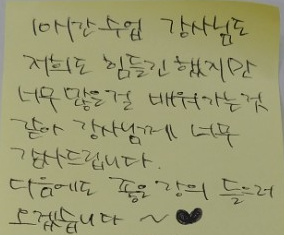 10시간 수업 강사님도
저희도 힘들긴 했지만
너무 많은걸 배워가는것
같아 강사님께 너무
감사드립니다.
다음에도 좋은 강의 들으러
오겠습니다 ~ ♥